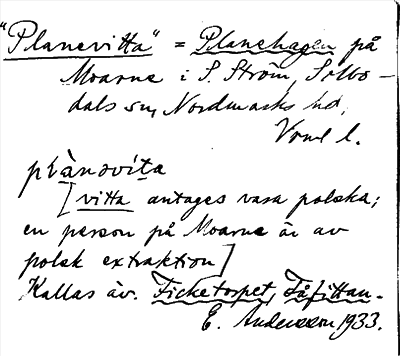 "Planevitta" = Planehagen på
Moarne i S. Ström, Silbo-
dals sn, Nordmarks hd,
Vrml l.
plànovita
[vitta antages vara polska;
en person på Moarne är av
polsk extraktion]
Kallas äv. Ficketorpet, Fåfittan.
E. Andersson 1933.